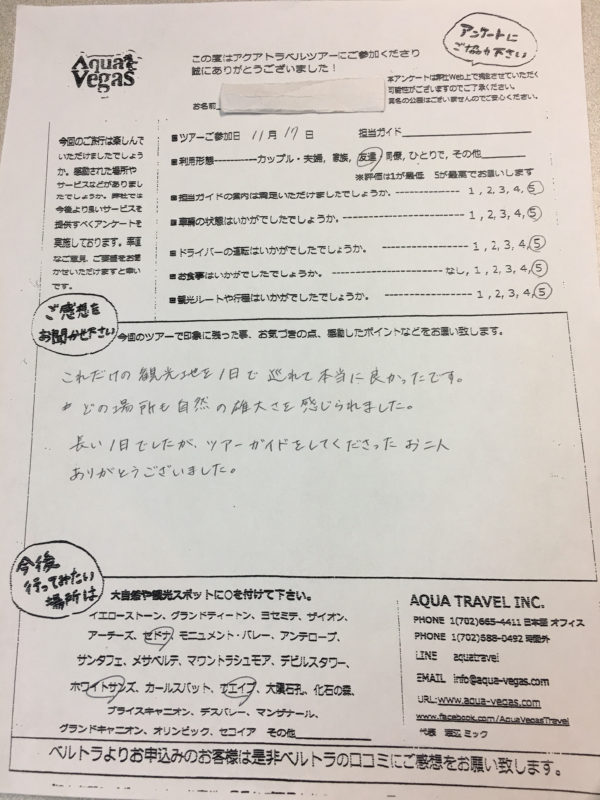 Aqua Vegas
この度はアクアトラベルツアーにご参加くださり
誠にありがとうございました！
アンケートに
ご協力下さい
本アンケートは弊社Web上で掲載させていただく
可能性がございますのでご了承ください。
実名の公開はございませんのでご安心ください。
お名前
今回のご旅行は楽しんで
いただけましたでしょう
か。感動された場所や
サービスなどがありまし
たでしょうか。弊社では
今後より良いサービスを
提供すべくアンケートを
実施しております。率直
なご意見、ご要望をお聞
かせいただけますと幸い
です。
■ツアーご参加日 11月17日 担当ガイド
■利用形態-----------カップル・夫婦, 家族, 友達, 同僚, ひとりで, その他
※評価は1が最低 5が最高でお願いします
■担当ガイドの案内は満足いただけましたでしょうか。 ---------- 1 , 2, 3, 4, 5
■車輛の状態はいかがでしたでしょうか。---------------------- 1, 2, 3, 4, 5
■ドライバーの運転はいかがでしたでしょうか。 ---------------- 1 , 2, 3, 4, 5
■お食事はいかがでしたでしょうか。 ---------------------- なし, 1 , 2, 3, 4, 5
■観光ルートや行程はいかがでしたでしょうか。 ---------------- 1, 2, 3, 4, 5
ご感想を
お聞かせ下さい
今回のツアーで印象に残った事、お気づきの点、感動したポイントなどをお願い致します。
これだけの観光地を1日で巡れて本当に良かったです。
どの場所も自然の雄大さを感じられました。
長い1日でしたが、ツアーガイドをしてくださったお二人
ありがとうございました。
今後
行ってみたい
場所は
大自然や観光スポットに○を付けて下さい。
イエローストーン、グランドティートン、ヨセミテ、ザイオン、
アーチーズ、セドナ、モニュメント・バレー、アンテロープ、
サンタフェ、メサベルデ、マウントラシュモア、デビルスタワー、
ホワイトサンズ、カールスバット、ウエイブ、大隕石孔、化石の森、
ブライスキャニオン、デスバレー、マンザナール、
グランドキャニオン、オリンピック、セコイア その他
AQUA TRAVEL INC.
PHONE 1(702)665-4411 日本語 オフィス
PHONE 1(702)588-0492 時間外
LINE aquatravel
EMAIL info@aqua-vegas.com
URL:www.aqua-vegas.com
www.facebook.com/AquaVegasTravel
代表 渡辺 ミック
ベルトラよりお申込みのお客様は是非ベルトラの口コミにご感想をお願い致します。